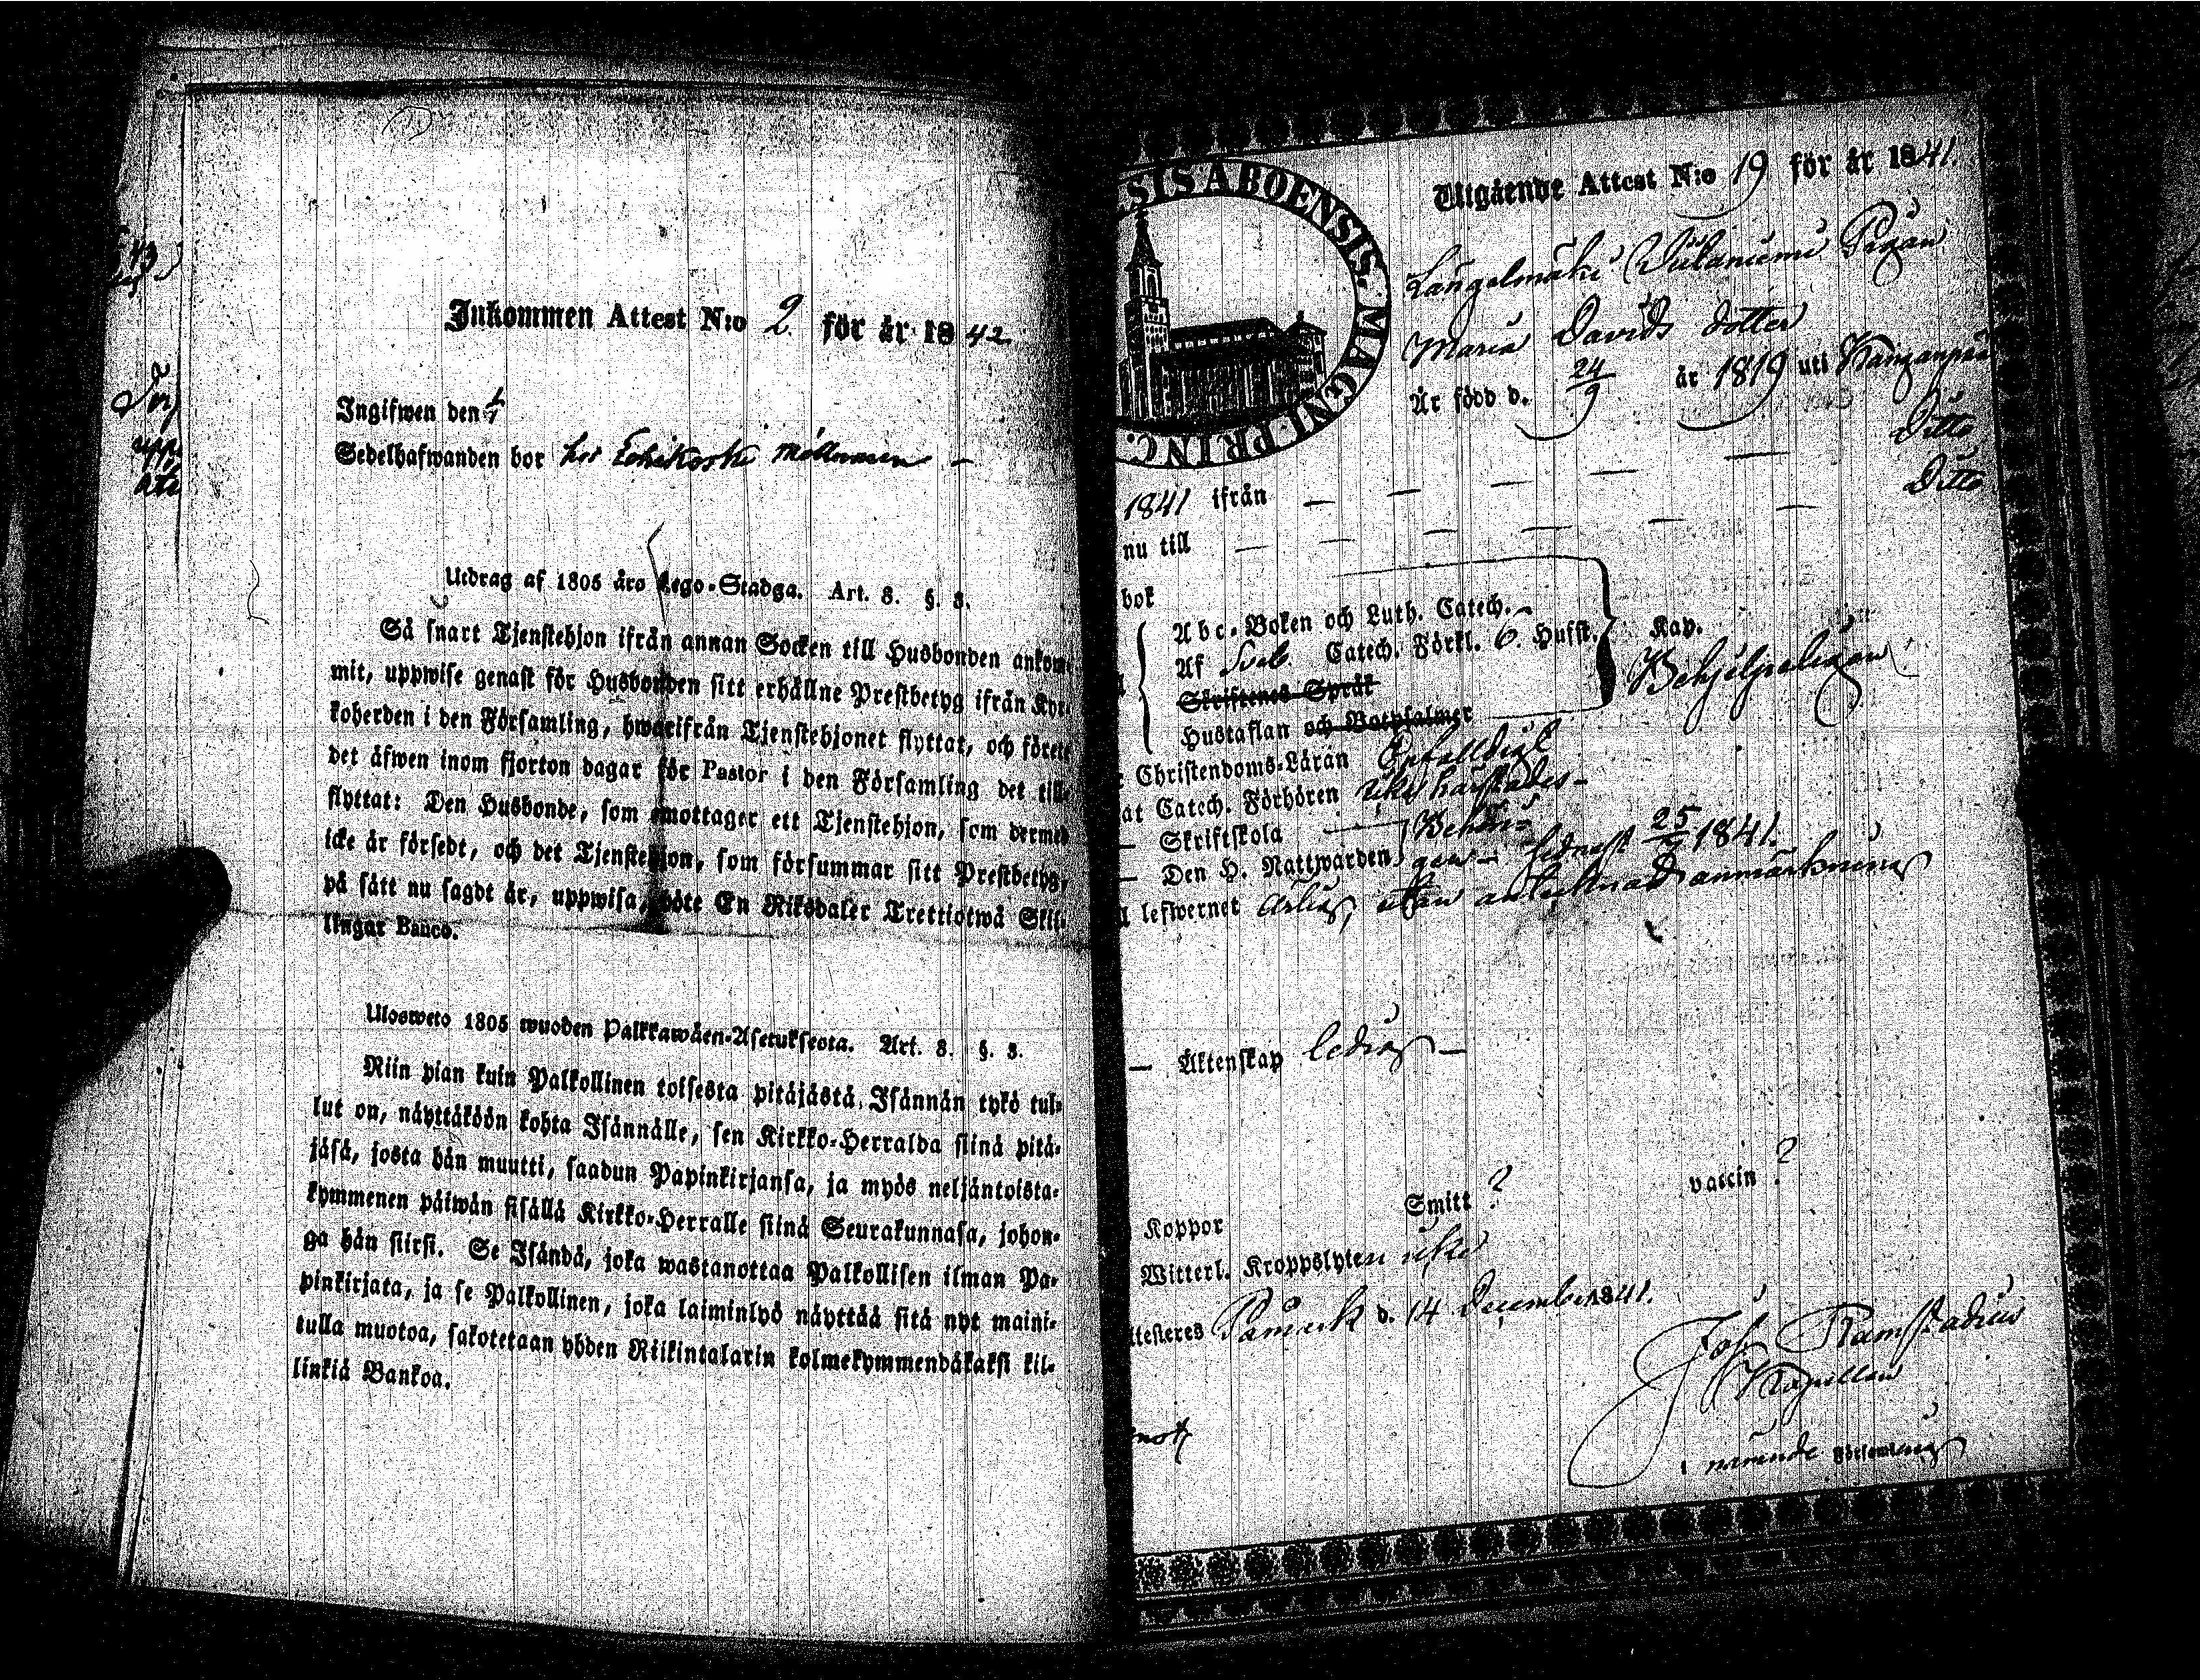 Inkommen Attest N:o 2. för år 1842
Ingifwen den
Sedelhafwanden bor hos
Utdrag af 1805 års Lego-Stadga. Art. 8. §. 3.
Så snart Tjenstehjon ifrån annan Socken till Husbonden ankom-
mit, uppwise genast för Husbonden sitt erhållne Prestbetyg ifrån Kyr-
koherden i den Församling, hwarifrån Tjenstehjonet flyttat, och förete
det äfwen inom fjorton dagar för Pastor i den Församling det till-
flyttat: Den Husbonde, som emottager ett Tjenstehjon, som dermed
icke är försedt, och det Tjenstehjon, som försummar sitt Prestbetyg,
på sätt nu sagdt är, uppwisa, böte En Riksdaler Trettiotwå Skil-
lingar Banco.
Ulosweto 1805 wuoden Palkkawäen-Asetuksesta. Art. 8. §. 3.
Niin pian kuin Palkollinen toisesta pitäjästä Isännän tykö tul-
lut on, näyttäköön kohta Isännälle, sen Kirkko-Herralda siinä pitä-
jäsä, josta hän muutti, saadun Papinkirjansa, ja myös neljäntoista-
kymmenen päiwän sisällä Kirkko-Herralle siinä Seurakunnasa, johon-
ga hän siirsi. Se Isändä, joka wastanottaa Palkollisen ilman Pa-
pinkirjata, ja se Palkollinen, joka laiminlyö näyttää sitä nyt maini-
tulla muotoa, sakotetaan yhden Riikintalarin kolmekymmendäkaksi kil-
linkiä Bankoa.
SIS ABOENSIS. MAGNI PRINC.
Utgående Attest N:o 19 för år 1841.
Längelmäki Pigan
Maria Davids dotter
Är född d. 24/9 år 1819 uti
Ditto
1841 ifrån — — — — Ditto
nu till — — — — —
bok
Abc-Boken och Luth. Catech.
Af Sveb. Catech. Förkl. 6. Hufst. Kap.
Skriftenes Språk Behjelpeligen
Hustaflan och Botpsalmer
Christendoms-Läran Enfalldigt
at Catech. Förhören
— Skriftskola Behöri-
— Den H. Nattwarden gen — sednast 25/7 1841.
lefwernet ärlig, utan antecknad anmärkning
— Äktenskap ledig —
Koppor Smitt ? vaccin ?
Witterl. Kroppslyten icke
ttesteres Påmark d. 14 December 1841.
Joh Ramstadius
Kapellan
i nämnde Församling